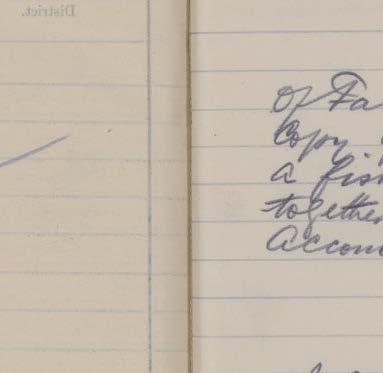 District.
of Fa
Copy
a fis
together
Accou